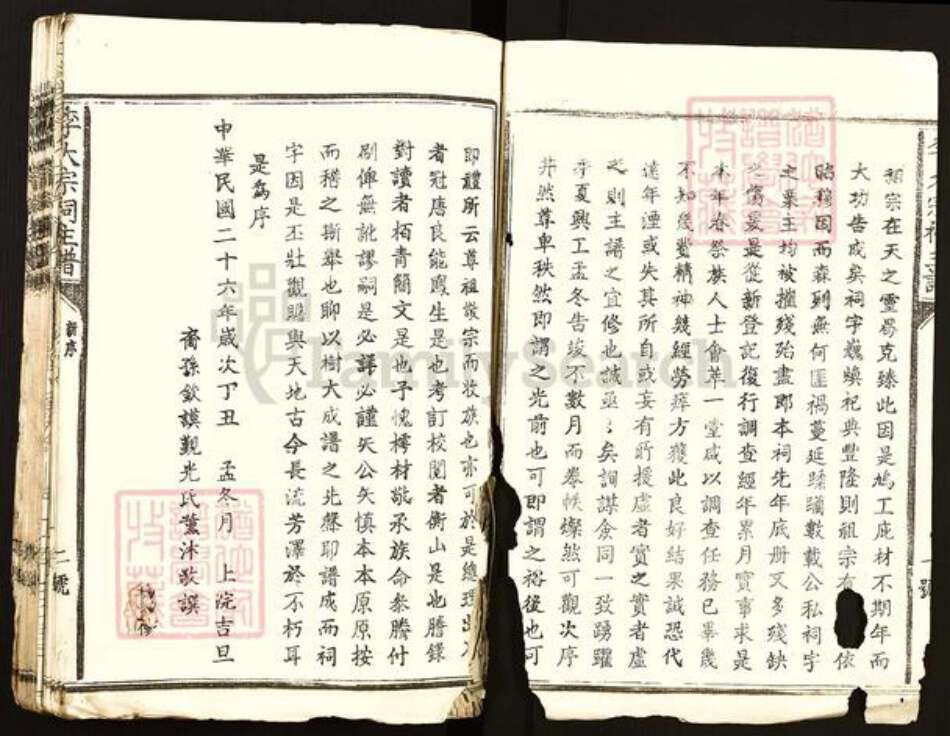 祖宗在天之靈曷克臻此因是鳩工庇材不期年而
大功告成矣祠宇巍煥祀典豐隆則祖宗有 依
臨穆因而森列無何匪禍蔓延蹂躪數載公私祠宇
之栗主均被摧殘殆盡即本祠先年底册又多殘缺
為爰是從新登記復行調查經年累月實事求是
本年春祭族人士會萃一堂咸以調查任務已畢幾
不知幾費精神幾經勞瘁方獲此良好結果誠恐代
遠年湮或失其所自或妄有所援虛者實之實者虛
之則主譜之宜修也誠亟亟矣詢謀僉同一致踴躍
季夏興工孟冬告竣不數月而卷帙燦然可觀次序
井然尊卑秩然即謂之光前也可即謂之裕後也可
即禮所云尊祖敬宗而收族也亦可於是總理出入
者冠唐良能慶生是也考訂校閱者衡山是也謄錄
對讀者栢青簡文是也予愧樗材敬承族命叅謄付
剞俾無訛謬嗣是必詳必謹矢公矢慎本本原原按
而稽之斯舉也聊以樹大成譜之先聲耶譜成而祠
宇因是丕壯觀贍與天地古今長流芳澤於不朽耳
是爲序
中華民國二十六年歲次丁丑 孟冬月 上浣吉旦
裔孫欽謨觀光氏薰沐敬譔
李大宗祠主譜
新序
二號
一號
FamilySearch